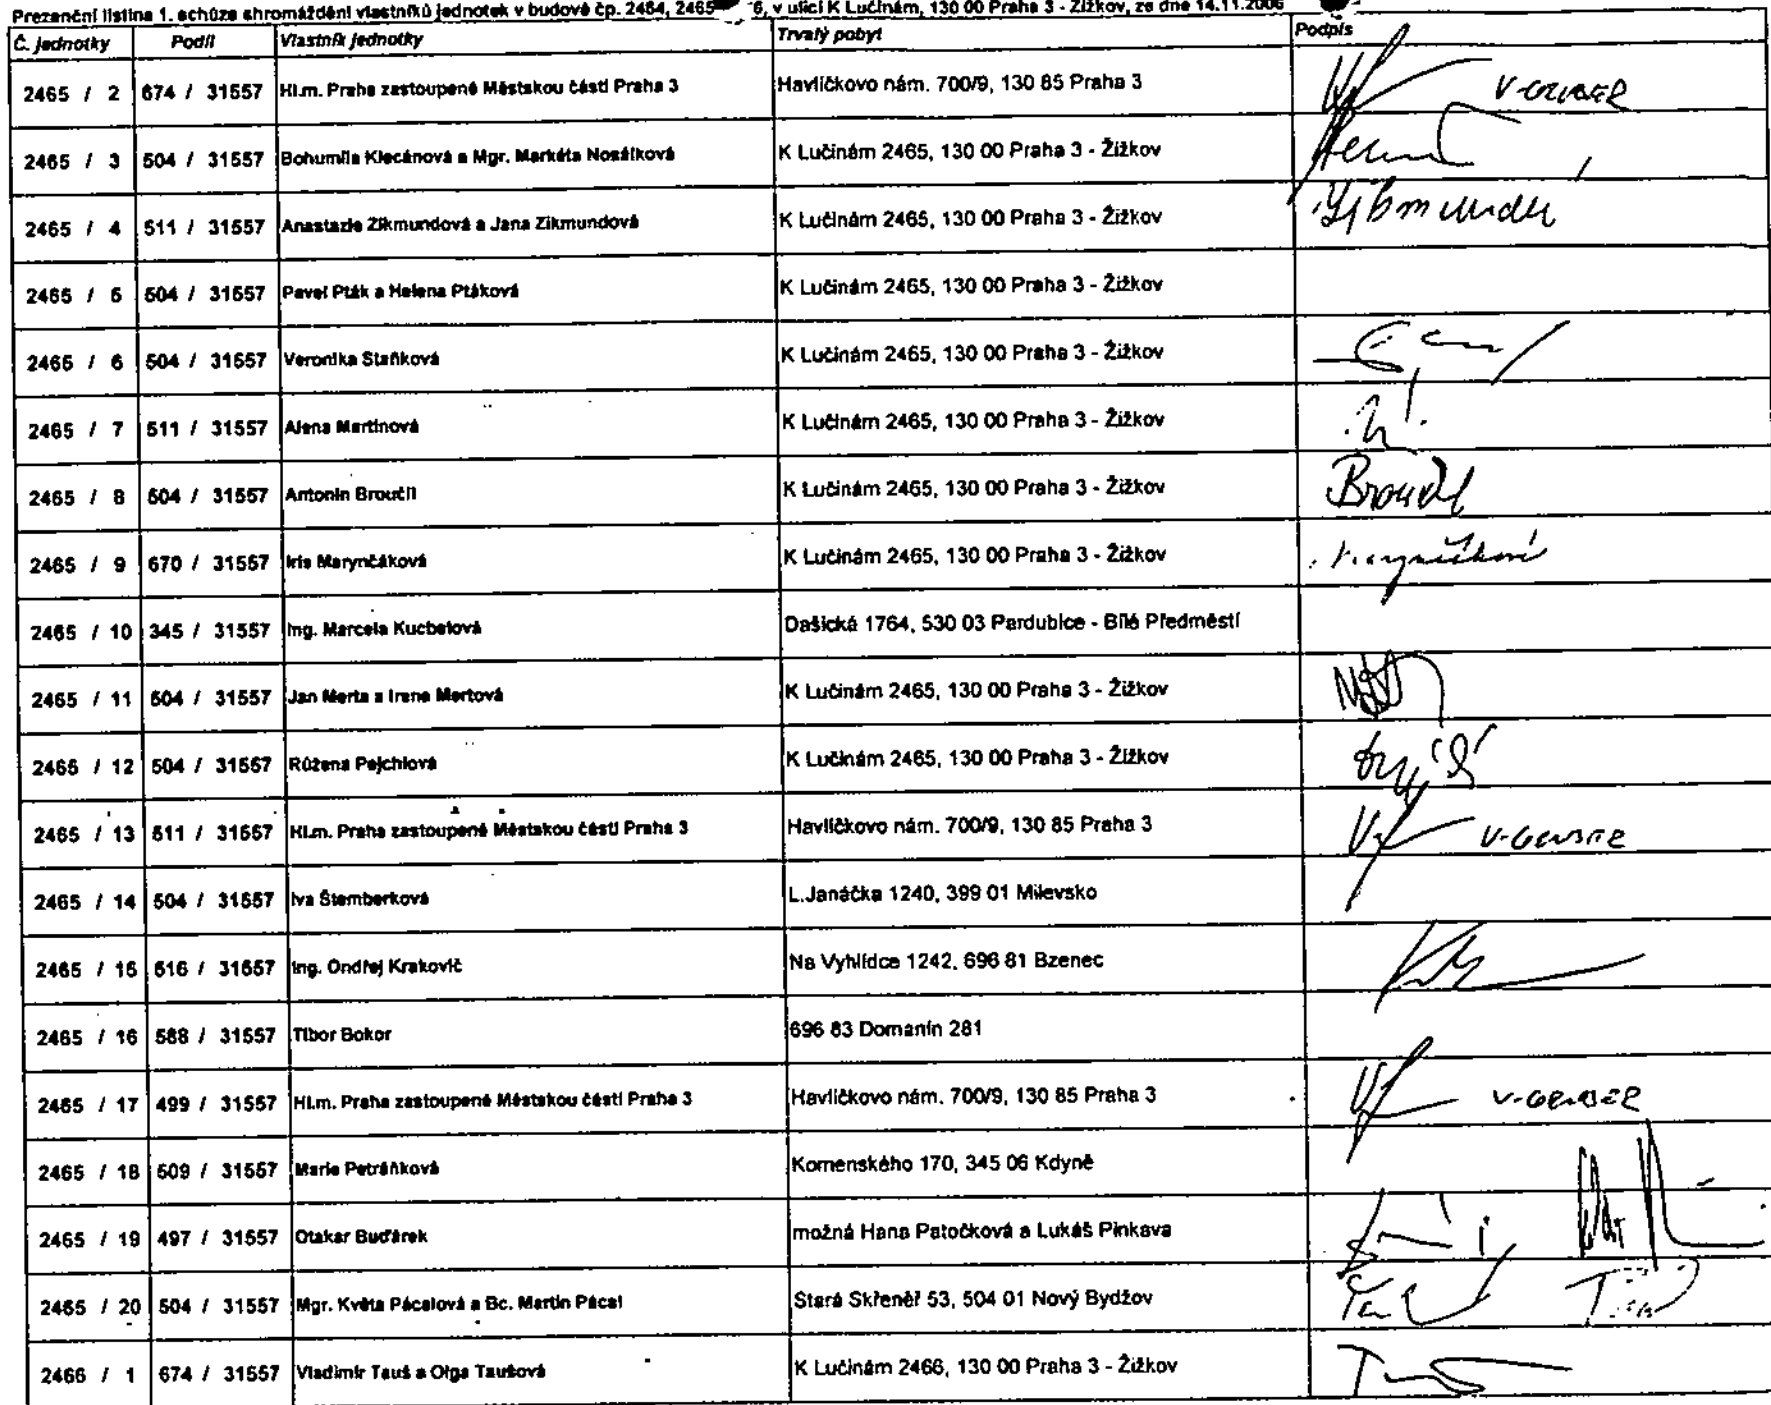 Prezenční listina 1. schůze shromáždění vlastníků jednotek v budově čp. 2464, 2465 6, v ulici K Lučinám, 130 00 Praha 3 - Žižkov, ze dne 14.11.2006
Č. jednotky Podíl Vlastník jednotky Trvalý pobyt Podpis
2465 / 2 674 / 31557 Hl.m. Praha zastoupené Městskou částí Praha 3 Havlíčkovo nám. 700/9, 130 85 Praha 3
2465 / 3 504 / 31557 Bohumila Klecánová a Mgr. Markéta Nosálková K Lučinám 2465, 130 00 Praha 3 - Žižkov
2465 / 4 511 / 31557 Anastazie Zikmundová a Jana Zikmundová K Lučinám 2465, 130 00 Praha 3 - Žižkov
2465 / 5 504 / 31557 Pavel Pták a Helena Ptáková K Lučinám 2465, 130 00 Praha 3 - Žižkov
2465 / 6 504 / 31557 Veronika Staňková K Lučinám 2465, 130 00 Praha 3 - Žižkov
2465 / 7 511 / 31557 Alena Martinová K Lučinám 2465, 130 00 Praha 3 - Žižkov
2465 / 8 504 / 31557 Antonín Broučil K Lučinám 2465, 130 00 Praha 3 - Žižkov
2465 / 9 670 / 31557 Iris Marynčáková K Lučinám 2465, 130 00 Praha 3 - Žižkov
2465 / 10 345 / 31557 Ing. Marcela Kucbelová Dašická 1764, 530 03 Pardubice - Bílé Předměstí
2465 / 11 504 / 31557 Jan Merta a Irena Mertová K Lučinám 2465, 130 00 Praha 3 - Žižkov
2465 / 12 504 / 31557 Růžena Pejchlová K Lučinám 2465, 130 00 Praha 3 - Žižkov
2465 / 13 511 / 31557 Hl.m. Praha zastoupené Městskou částí Praha 3 Havlíčkovo nám. 700/9, 130 85 Praha 3
2465 / 14 504 / 31557 Iva Štemberková L.Janáčka 1240, 399 01 Milevsko
2465 / 15 516 / 31557 Ing. Ondřej Krakovič Na Vyhlídce 1242, 696 81 Bzenec
2465 / 16 588 / 31557 Tibor Bokor 696 83 Domanín 281
2465 / 17 499 / 31557 Hl.m. Praha zastoupené Městskou částí Praha 3 Havlíčkovo nám. 700/9, 130 85 Praha 3
2465 / 18 509 / 31557 Marie Petráňková Komenského 170, 345 06 Kdyně
2465 / 19 497 / 31557 Otakar Buďárek možná Hana Patočková a Lukáš Pinkava
2465 / 20 504 / 31557 Mgr. Květa Pácalová a Bc. Martin Pácal Stará Skřeněř 53, 504 01 Nový Bydžov
2466 / 1 674 / 31557 Vladimír Tauš a Olga Taušová K Lučinám 2466, 130 00 Praha 3 - Žižkov